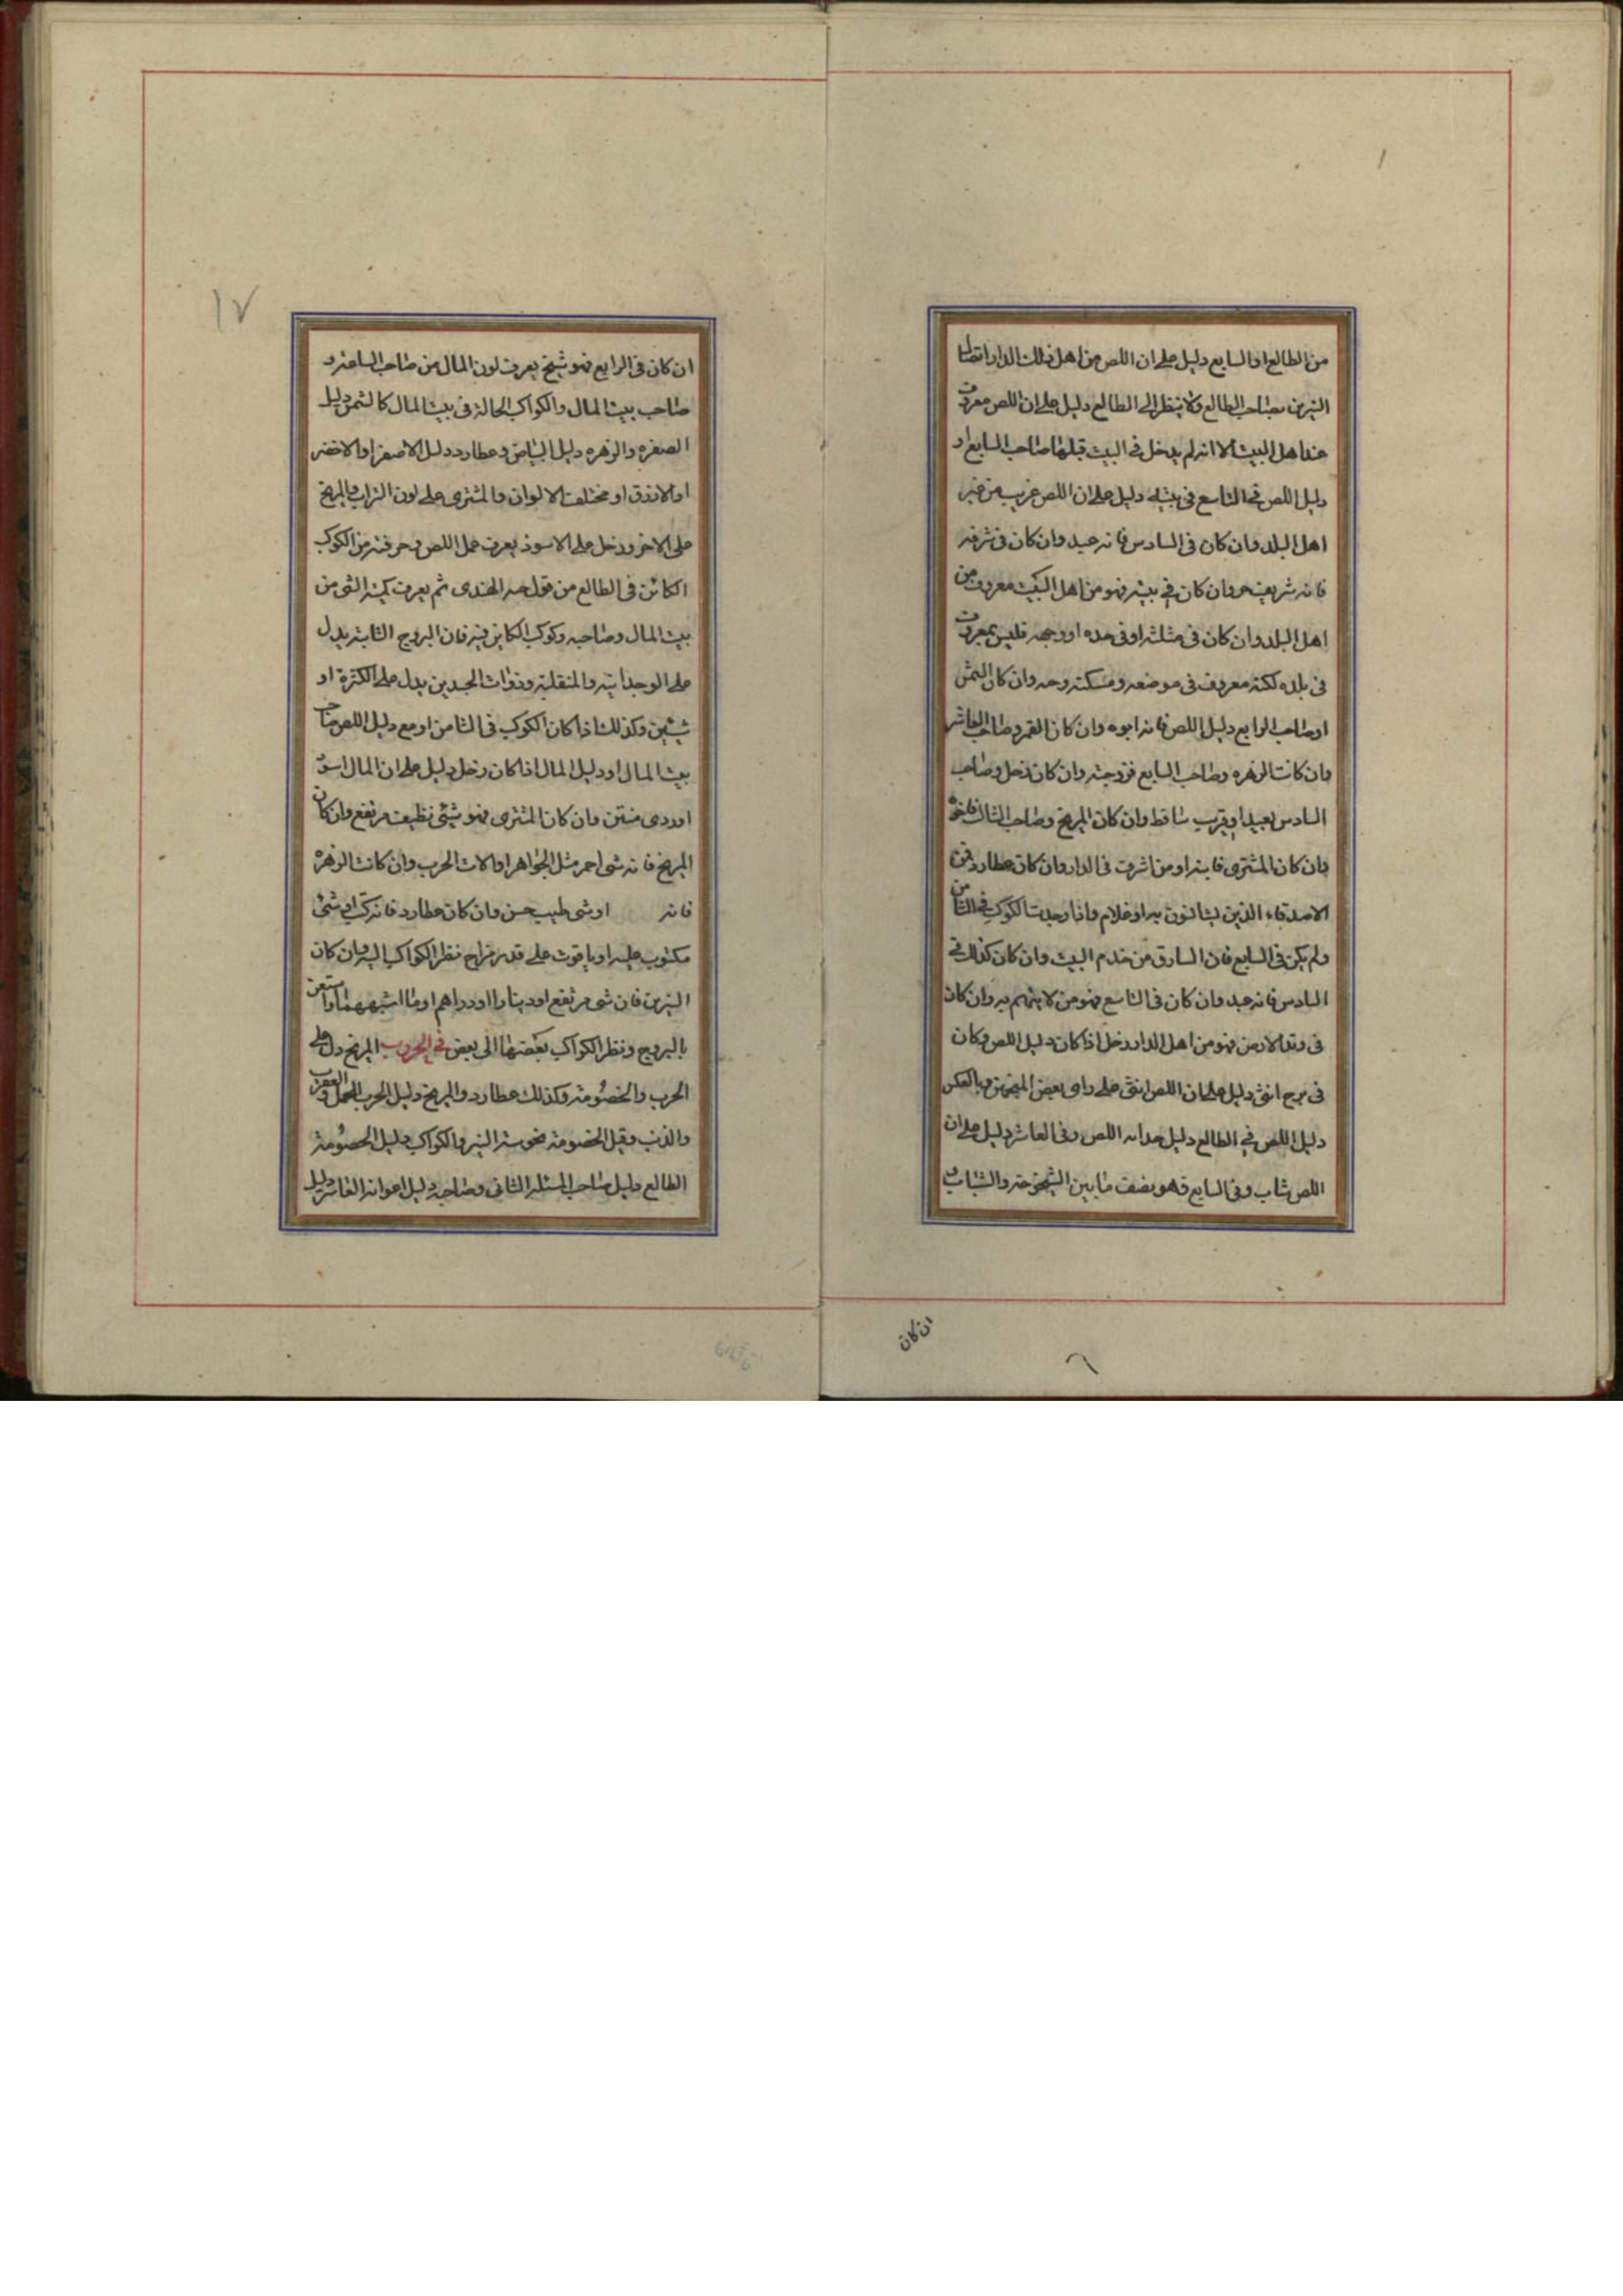 من الطالع او السابع دليل على ان اللص من اهل ذلك الدار اتصال
النيرين بصاحب الطالع ولا ينظر الى الطالع دليل على ان اللص معروف
عند اهل البيت الا انه لم يدخل فى البيت قبلها صاحب السابع او
دليل اللص فى التاسع فى بيته دليل على ان اللص غريب من غير
اهل البلد وان كان فى السادس فانه عبد وان كان فى شرفه
فانه شريف حر وان كان فى بيته فهو من اهل البيت معروف من
اهل البلد وان كان فى مثلثه او فى حده او وجهه فليس بمعروف
فى بلده لكنه معروف فى موضعه ومسكنه وحد وان كان الشمس
او صاحب الرابع دليل اللص فانه ابوه وان كان القمر وصاحب العاشر
وان كانت الزهره وصاحب السابع فزوجته وان كان زحل وصاحب
السادس بعيدا وبقرب ساقط وان كان المريخ وصاحب الثالث فاخوه
وان كان المشترى فابنه او من اشرف فى الدار وان كان عطارد فمن
الاصدقاء الذين يستانون به او غلام واذا وجدت الكوكب فى الثامن
ولم يكن فى السابع فان السارق من خدم البيت وان كان كذلك فى
السادس فانه عبد وان كان فى التاسع فهو من لا يتهم به وان كان
فى وتد الارض فهو من اهل الدار زحل اذا كان دليل اللص وكان
فى برج انثى دليل على ان اللص انثى على راى بعض المنجمين وبالعكس
دليل اللص فى الطالع دليل حداثه اللص وفى العاشر دليل على ان
اللص شاب وفى السابع فهو نصف ما بين الشيخوخة والشباب
ان كان
١٧
ان كان فى الرابع فهو شيخ يعرف لون المال من صاحب الساعة و
صاحب بيت المال والكواكب الحالة فى بيت المال كالشمس دليل
الصفره والزهره دليل البياض وعطارد دليل الاصفر او الاخضر
او الازرق او مختلف الالوان والمشترى على لون التراب والمريخ
على الاحمر وزحل على الاسود يعرف عمل اللص وحرفته من الكوكب
الكائن فى الطالع من قول الهندى ثم يعرف كمية الشى من
بيت المال وصاحبه وكوكب الكاين فيه فان البروج الثابته يدل
على الوحدانيه والمنقلبة وذوات الجسدين يدل على الكثرة او
شيئين وكذلك اذا كان الكوكب فى الثامن او مع دليل اللص صاحب
بيت المال او دليل المال اذا كان زحل دليل على ان المال اسود
او ردى منتن وان كان المشترى فهو شيئى نظيف مرتفع وان كان
المريخ فانه شى احمر مثل الجواهر او الات الحرب وان كانت الزهرة
فانه او شى طيب حسن وان كان عطارد فانه كتب او شئ
مكتوب عليه او ياقوت على قدر مزاج نظر الكواكب اليه وان كان
النيرين فان شى مرتفع او دينارا او دراهم او ما اشبههما واستعن
بالبروج ونظر الكواكب بعضها الى بعض فى الحروب المريخ دل على
الحرب والخصومة وكذلك عطارد والمريخ دليل الحرب الحمل والعقرب
والذنب وقبل الخصومة نحوسة النير والكواكب دليل الخصومة
الطالع دليل صاحب المسئله الثانى وصاحبه دليل اعوانه العاشر دليل